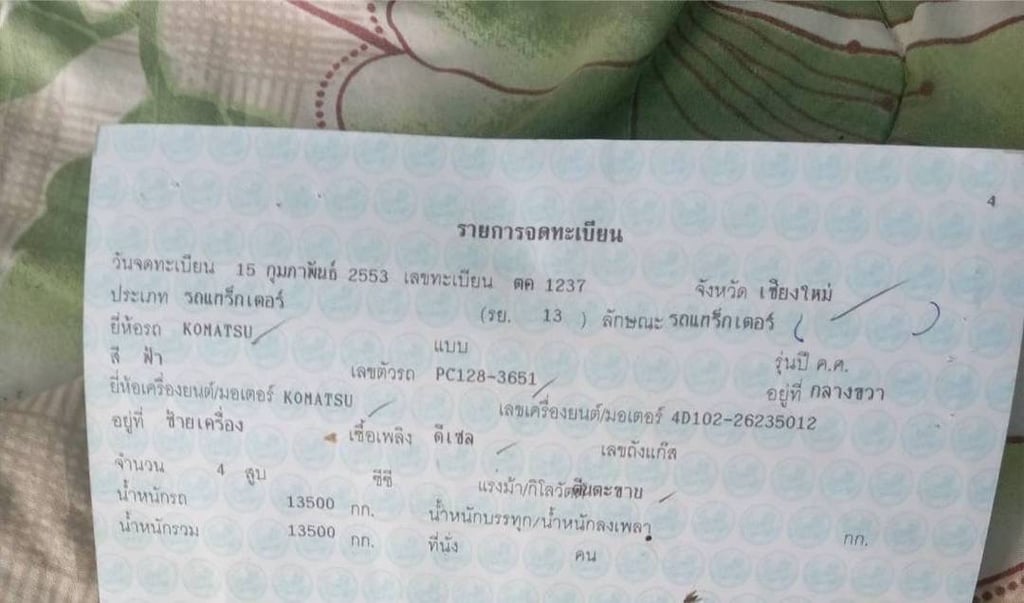 4
รายการจดทะเบียน
วันจดทะเบียน 15 กุมภาพันธ์ 2553 เลขทะเบียน ตค 1237 จังหวัด เชียงใหม่
ประเภท รถแทร็กเตอร์ (รย. 13 ) ลักษณะ รถแทร็กเตอร์
ยี่ห้อรถ KOMATSU แบบ รุ่นปี ค.ศ.
สี ฟ้า เลขตัวรถ PC128-3651 อยู่ที่ กลางขวา
ยี่ห้อเครื่องยนต์/มอเตอร์ KOMATSU เลขเครื่องยนต์/มอเตอร์ 4D102-26235012
อยู่ที่ ซ้ายเครื่อง เชื้อเพลิง ดีเซล เลขถังแก๊ส
จำนวน 4 สูบ ซีซี แรงม้า/กิโลวัตต์ ตีนตะขาบ
น้ำหนักรถ 13500 กก. น้ำหนักบรรทุก/น้ำหนักลงเพลา กก.
น้ำหนักรวม 13500 กก. ที่นั่ง คน